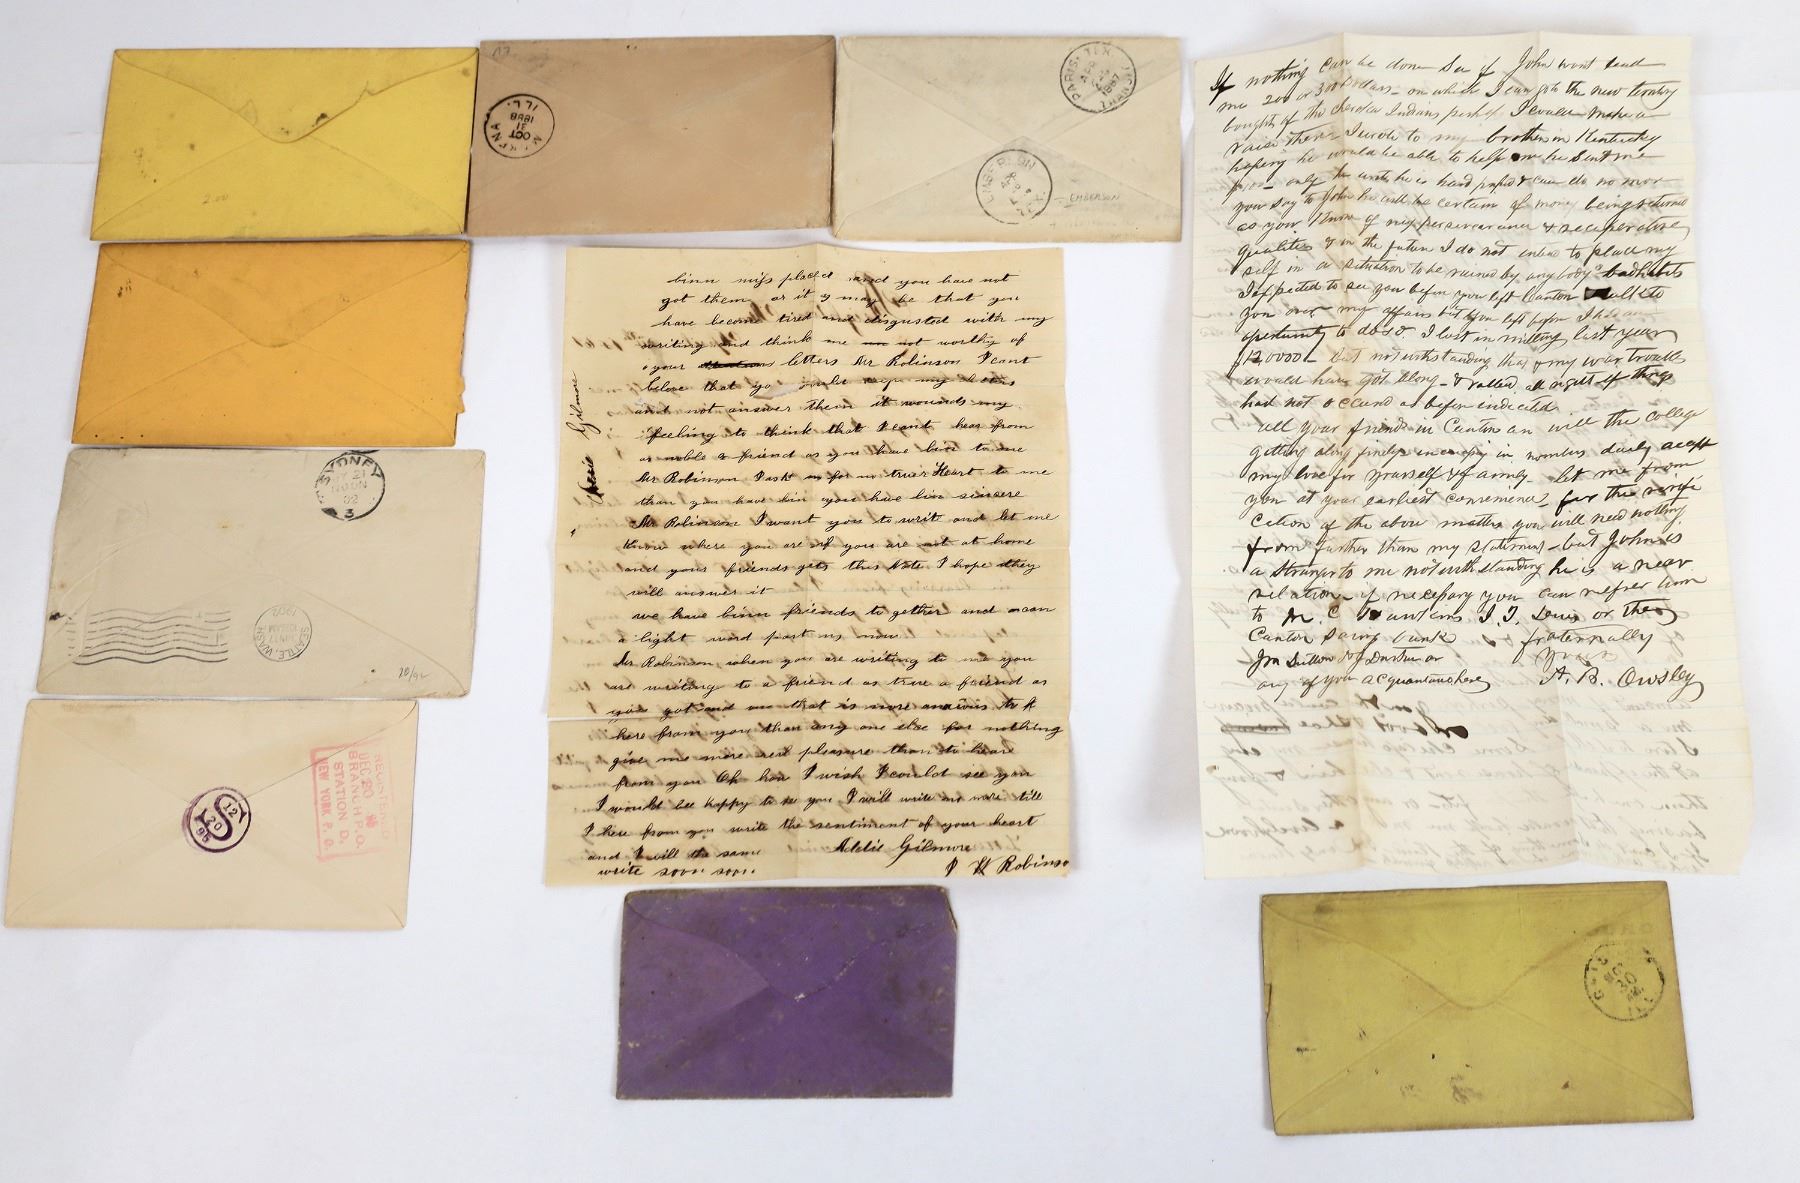 2.00
MOKENA
OCT
31
1898
ILL.
PARIS, TEX
APR
1897
EMBERSON
SYDNEY
21
NOON
02
3
SEATTLE, WASH.
JUN 17
1902
20/92
REGISTERED
DEC 20 95
BRANCH P.O.
STATION D.
NEW YORK P.O.
S
12
20
95
binn miss placed and you have not
got them or it may be that you
have become tired and disgusted with my
writing and think me not worthy of
your letters Mr Robinson I cant
belive that yo my letters
and not answer them it wounds my
feeling to think that I cant hear from
as noble a friend as you have bin to me
Mr Robinson I ask for no truer Heart to me
than you have bin you have bin sincere
Mr Robinson I want you to writ and let me
know where you are if you are not at home
and your friends gets this Note I hope they
will answer it
we have binn friends to gether and can
a light word part us now
Mr Robinson when you are writing to me you
are writing to a friend as true a friend as
you got and one that is more anxious to
here from you than any one else for nothing
give me more real pleasure than to hear
from you Oh how I wish I could see you
I would bee happy to se you I will write no more till
I here from you write the sentiment of your heart
and I will the same Addie Gilmore
write soon soon J H Robinso
Gilmore
If nothing can be done See if John wont lend
me 200 or 300 Dollars on which I can go to the new teritory
bought of the Indians I could make a
raise there I wrote to my brother in Kentucky
hoping he would be able to help me he sent me
only he writes he is hard & can do no more
you say to John he will be certain of money being returned
as you know of my perseverance & recuperative
qualities & in the future I do not intend to place my
self in a situation to be ruined by any body
I expected to see you before you left Canton & talk to
you over my affairs but you left before I had an
opertunity to do so. I lost in milling last year
$12,000 but notwithstanding that & my war troubles
would have got along & rallied all right if things
had not occured as before indicated
all your friends in Canton are well the college
getting along finely increasing in numbers daily accept
my love for yourself & family let me from
you at your earliest convenience for the verifi
cation of the above matters you will need nothing
from further than my statement but John is
a stranger to me notwithstanding he is a near
relation if necessary you can refer him
to M. C. Hawkins I. T. Lewis or the
Canton Saving bank fraternally
Jon Sutton or Yours
any of you acquantances here A. B. Owsley
30